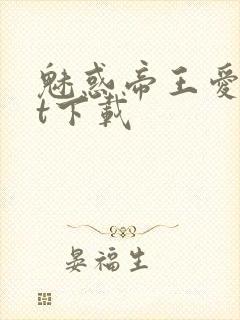 魅惑帝王爱
t下载
晏福生